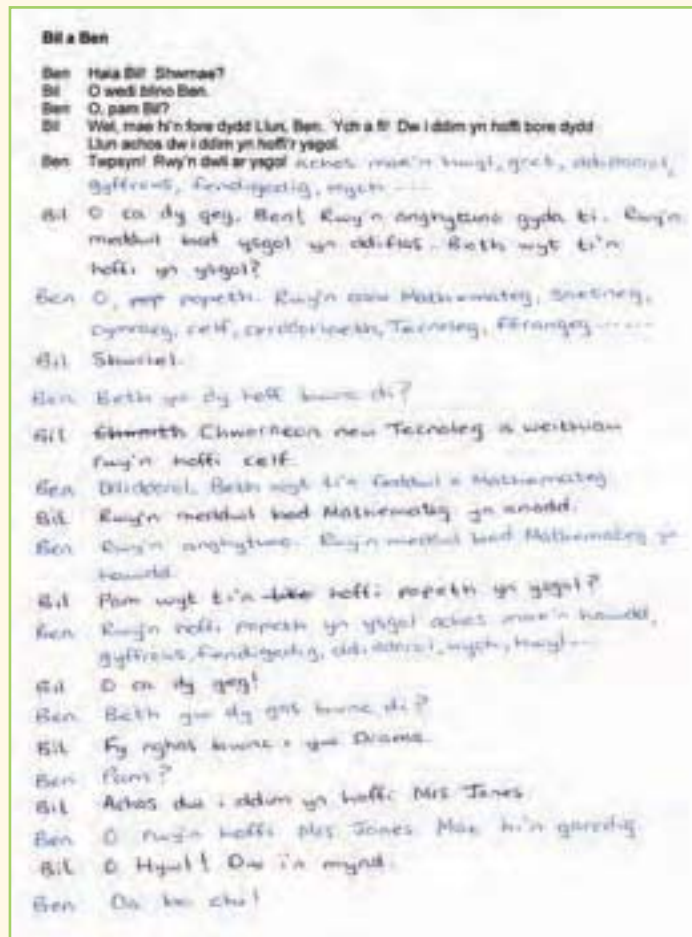 Bil a Ben
Ben Haia Bil! Shwmae?
Bil O wedi blino Ben.
Ben O, pam Bil?
Bil Wel, mae hi'n fore dydd Llun, Ben. Ych a fi! Dw i ddim yn hoffi bore dydd
Llun achos dw i ddim yn hoffi'r ysgol.
Ben Twpsyn! Rwy'n dwli ar ysgol achos mae'n hwyl, gret, ddiddorol,
gyffrous, fendigedig, wych ---
Bil O ca dy geg, Ben! Rwy'n anghytuno gyda ti. Rwy'n
meddwl bod ysgol yn ddiflas. Beth wyt ti'n
hoffi yn ysgol?
Ben O, pop popeth. Rwy'n Mathemateg, Saesneg,
Cymraeg, celf, cerddoriaeth, Tecnoleg, Ffrangeg......
Bil Sbwriel.
Ben Beth yw dy hoff bwnc di?
Bil Chwaraeon neu Tecnoleg a weithiau
rwy'n hoffi celf.
Ben Ddiddorol. Beth wyt ti'n feddwl o Mathemateg.
Bil Rwy'n meddwl bod Mathemateg yn anodd.
Ben Rwy'n anghytuno. Rwy'n meddwl bod Mathemateg yn
hawdd.
Bil Pam wyt ti'n hoffi popeth yn ysgol?
Ben Rwy'n hoffi popeth yn ysgol achos mae'n hawdd,
gyffrous, fendigedig, ddiddorol, wych, hwyl---
Bil O ca dy geg!
Ben Beth yw dy gas bwnc di?
Bil Fy nghas bwnc i yw Drama.
Ben Pam?
Bil Achos dw i ddim yn hoffi Mrs Jones.
Ben O rwy'n hoffi Mrs Jones. Mae hi'n garedig.
Bil O Hwyl! Dw i'n mynd.
Ben Da bo chi!